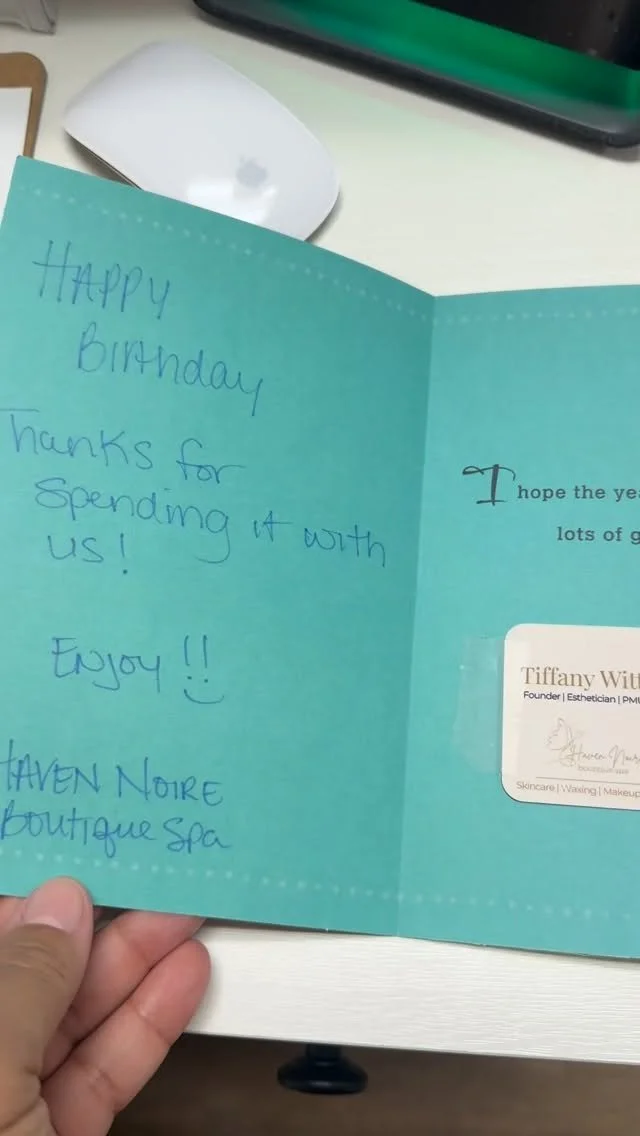 HAPPY
Birthday
Thanks for
Spending it with
us!
Enjoy!!
HAVEN NOIRE
Boutique Spa
I hope the
lots of
Tiffany
Founder | Esthetician |
Haven
boutique spa
Skincare | Waxing | Makeup